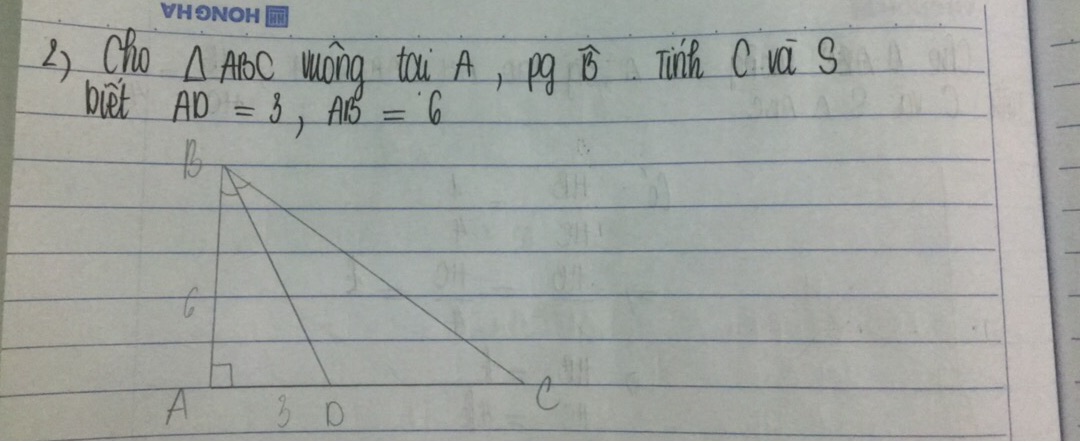 HONGHA
2) Cho Δ ABC vuông tại A, pg B̂. Tính C và S
biết AD = 3, AB = 6
B
6
A 3 D C